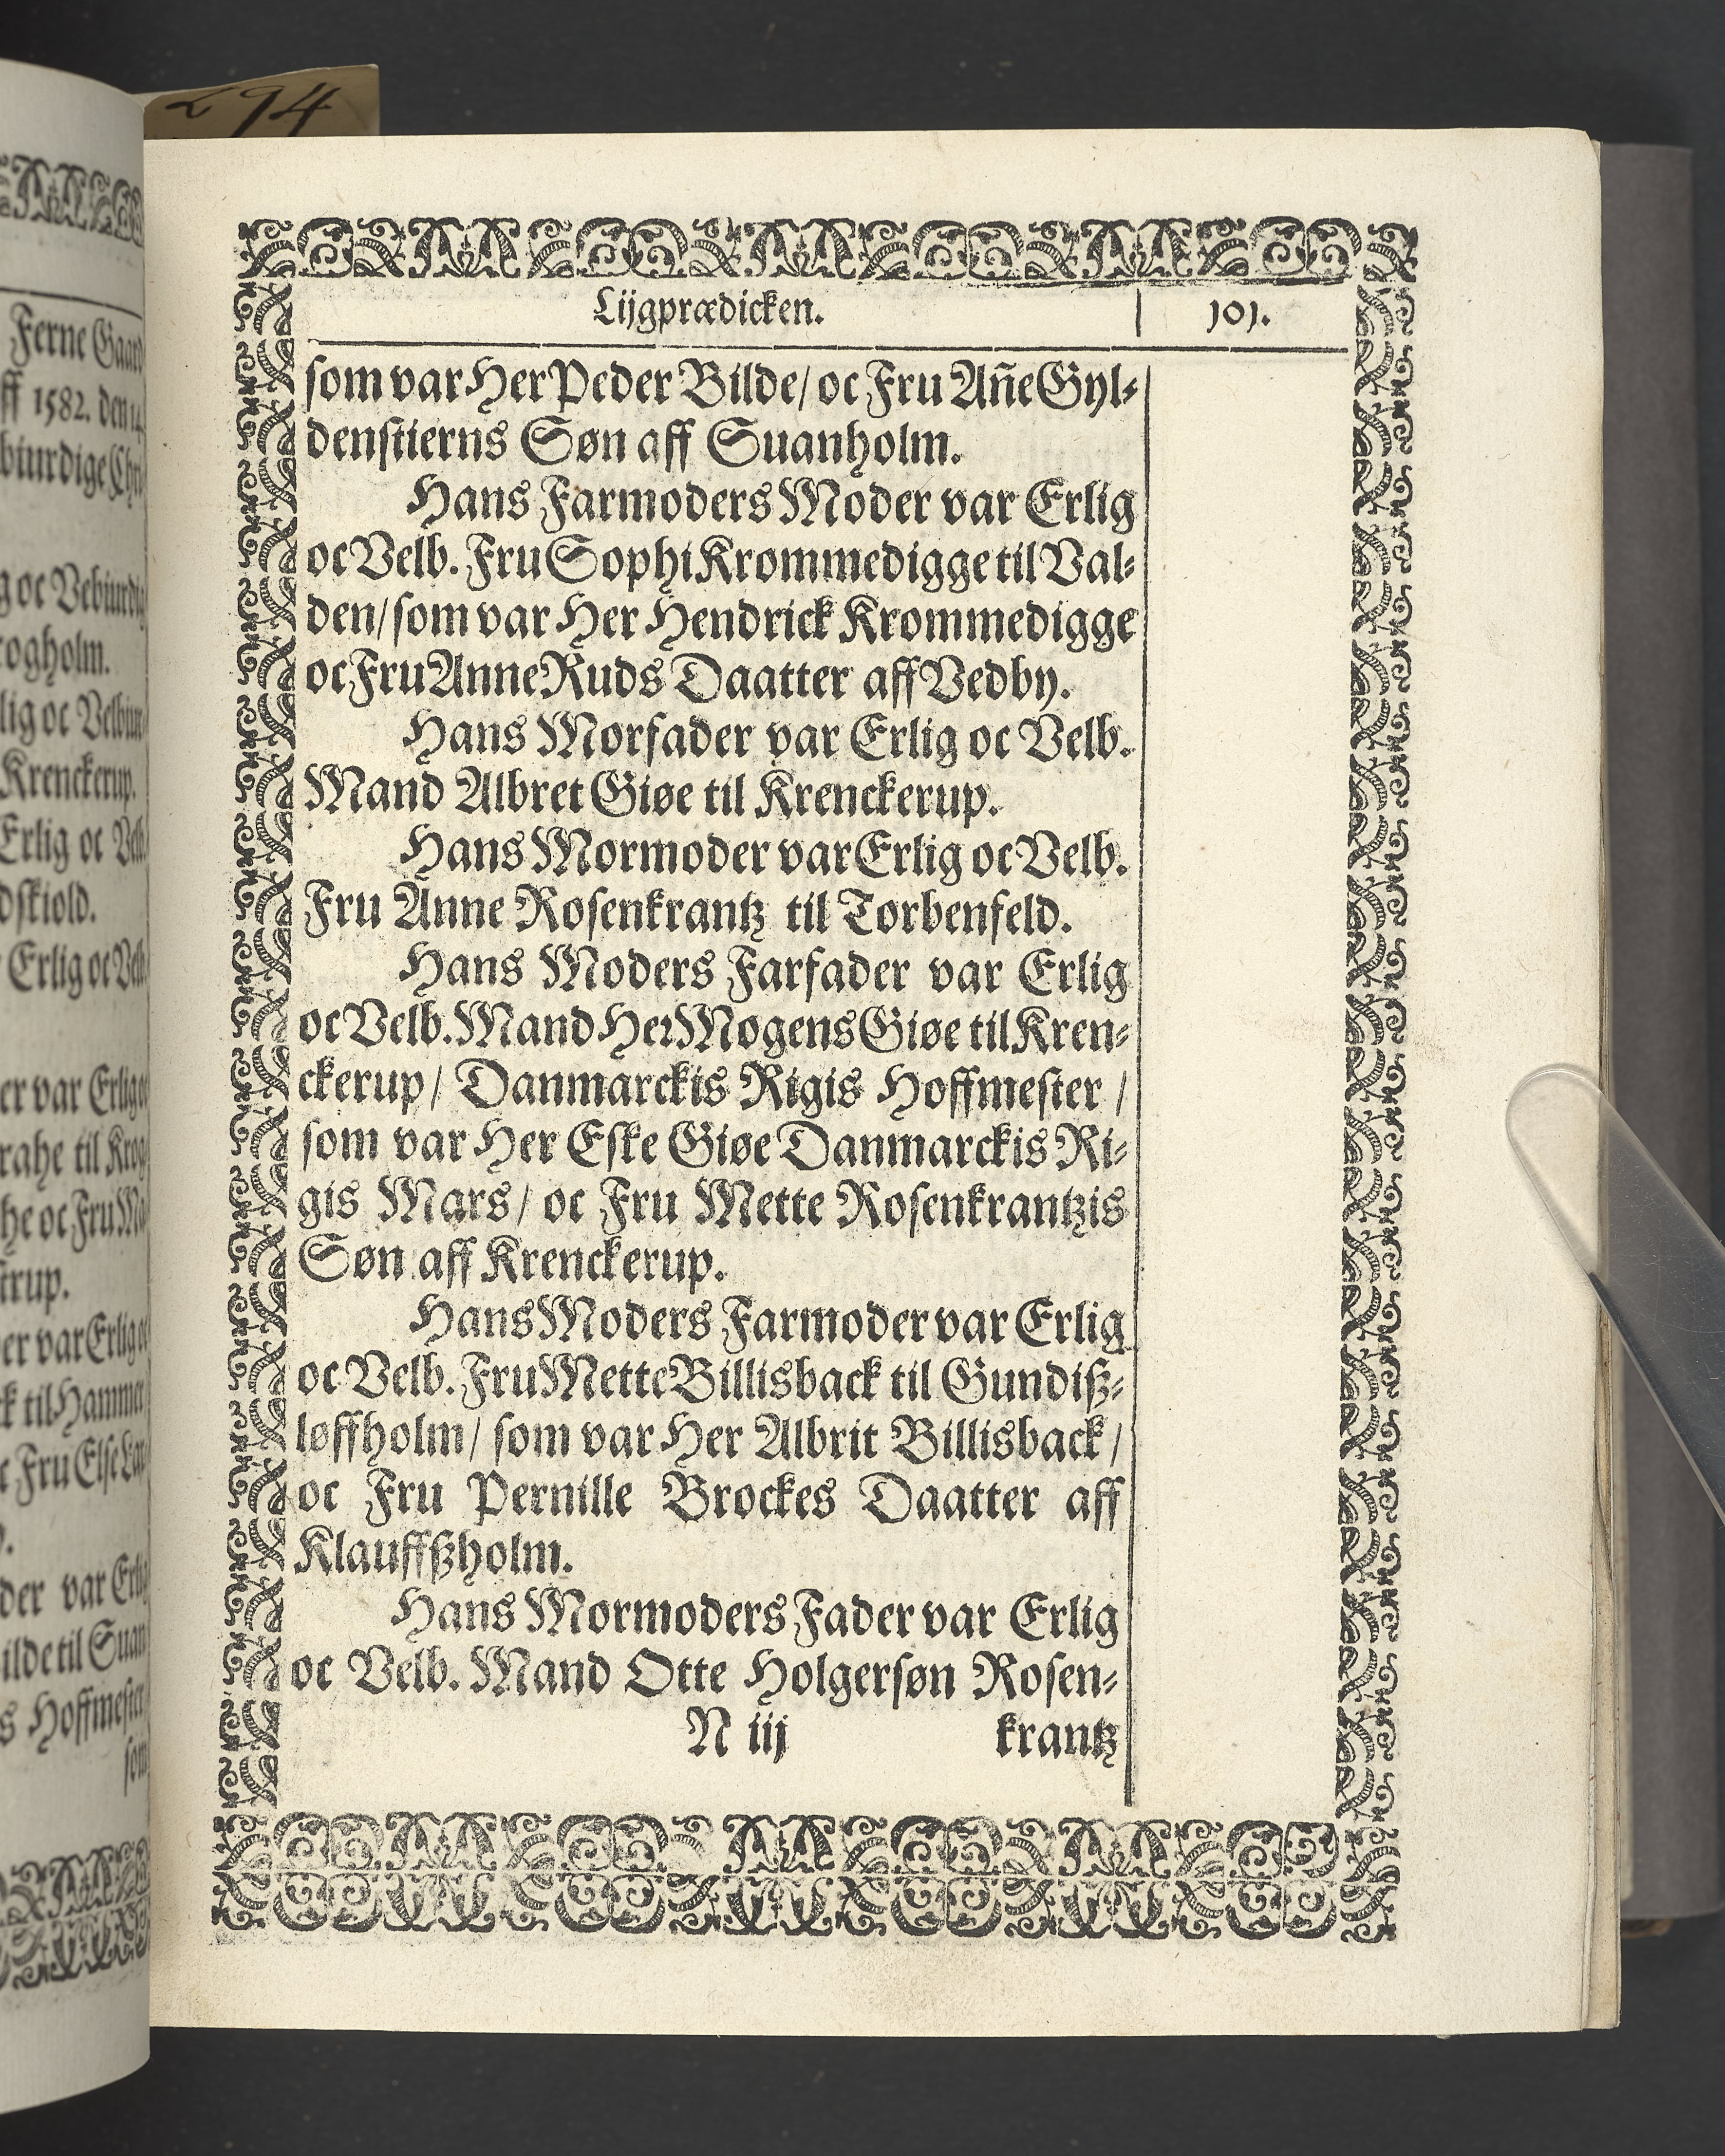 294
Lijgprædicken.
101.
som var Her Peder Bilde/ oc Fru Añe Gyl-
denstierns Søn aff Suanholm.
Hans Farmoders Moder var Erlig
oc Velb. Fru Sophi Krommedigge til Val-
den/ som var Her Hendrick Krommedigge
oc Fru Anne Ruds Daatter aff Vedby.
Hans Morfader var Erlig oc Velb.
Mand Albret Giøe til Krenckerup.
Hans Mormoder var Erlig oc Velb.
Fru Anne Rosenkrantz til Torbenfeld.
Hans Moders Farfader var Erlig
oc Velb. Mand Her Mogens Giøe til Kren-
ckerup/ Danmarckis Rigis Hoffmester /
som var Her Eske Giøe Danmarckis Ri-
gis Mars/ oc Fru Mette Rosenkrantzis
Søn aff Krenckerup.
Hans Moders Farmoder var Erlig
oc Velb. Fru Mette Billisback til Gundiß-
løffholm/ som var Her Albrit Billisback/
oc Fru Pernille Brockes Daatter aff
Klauffßholm.
Hans Mormoders Fader var Erlig
oc Velb. Mand Otte Holgersøn Rosen-
N iij
krantz
Ferne Gaard
1582. den
oc
Krenckerup.
Erlig oc
Erlig oc
var
til
var
til
Fru Else
var
til
Hoffmester
som